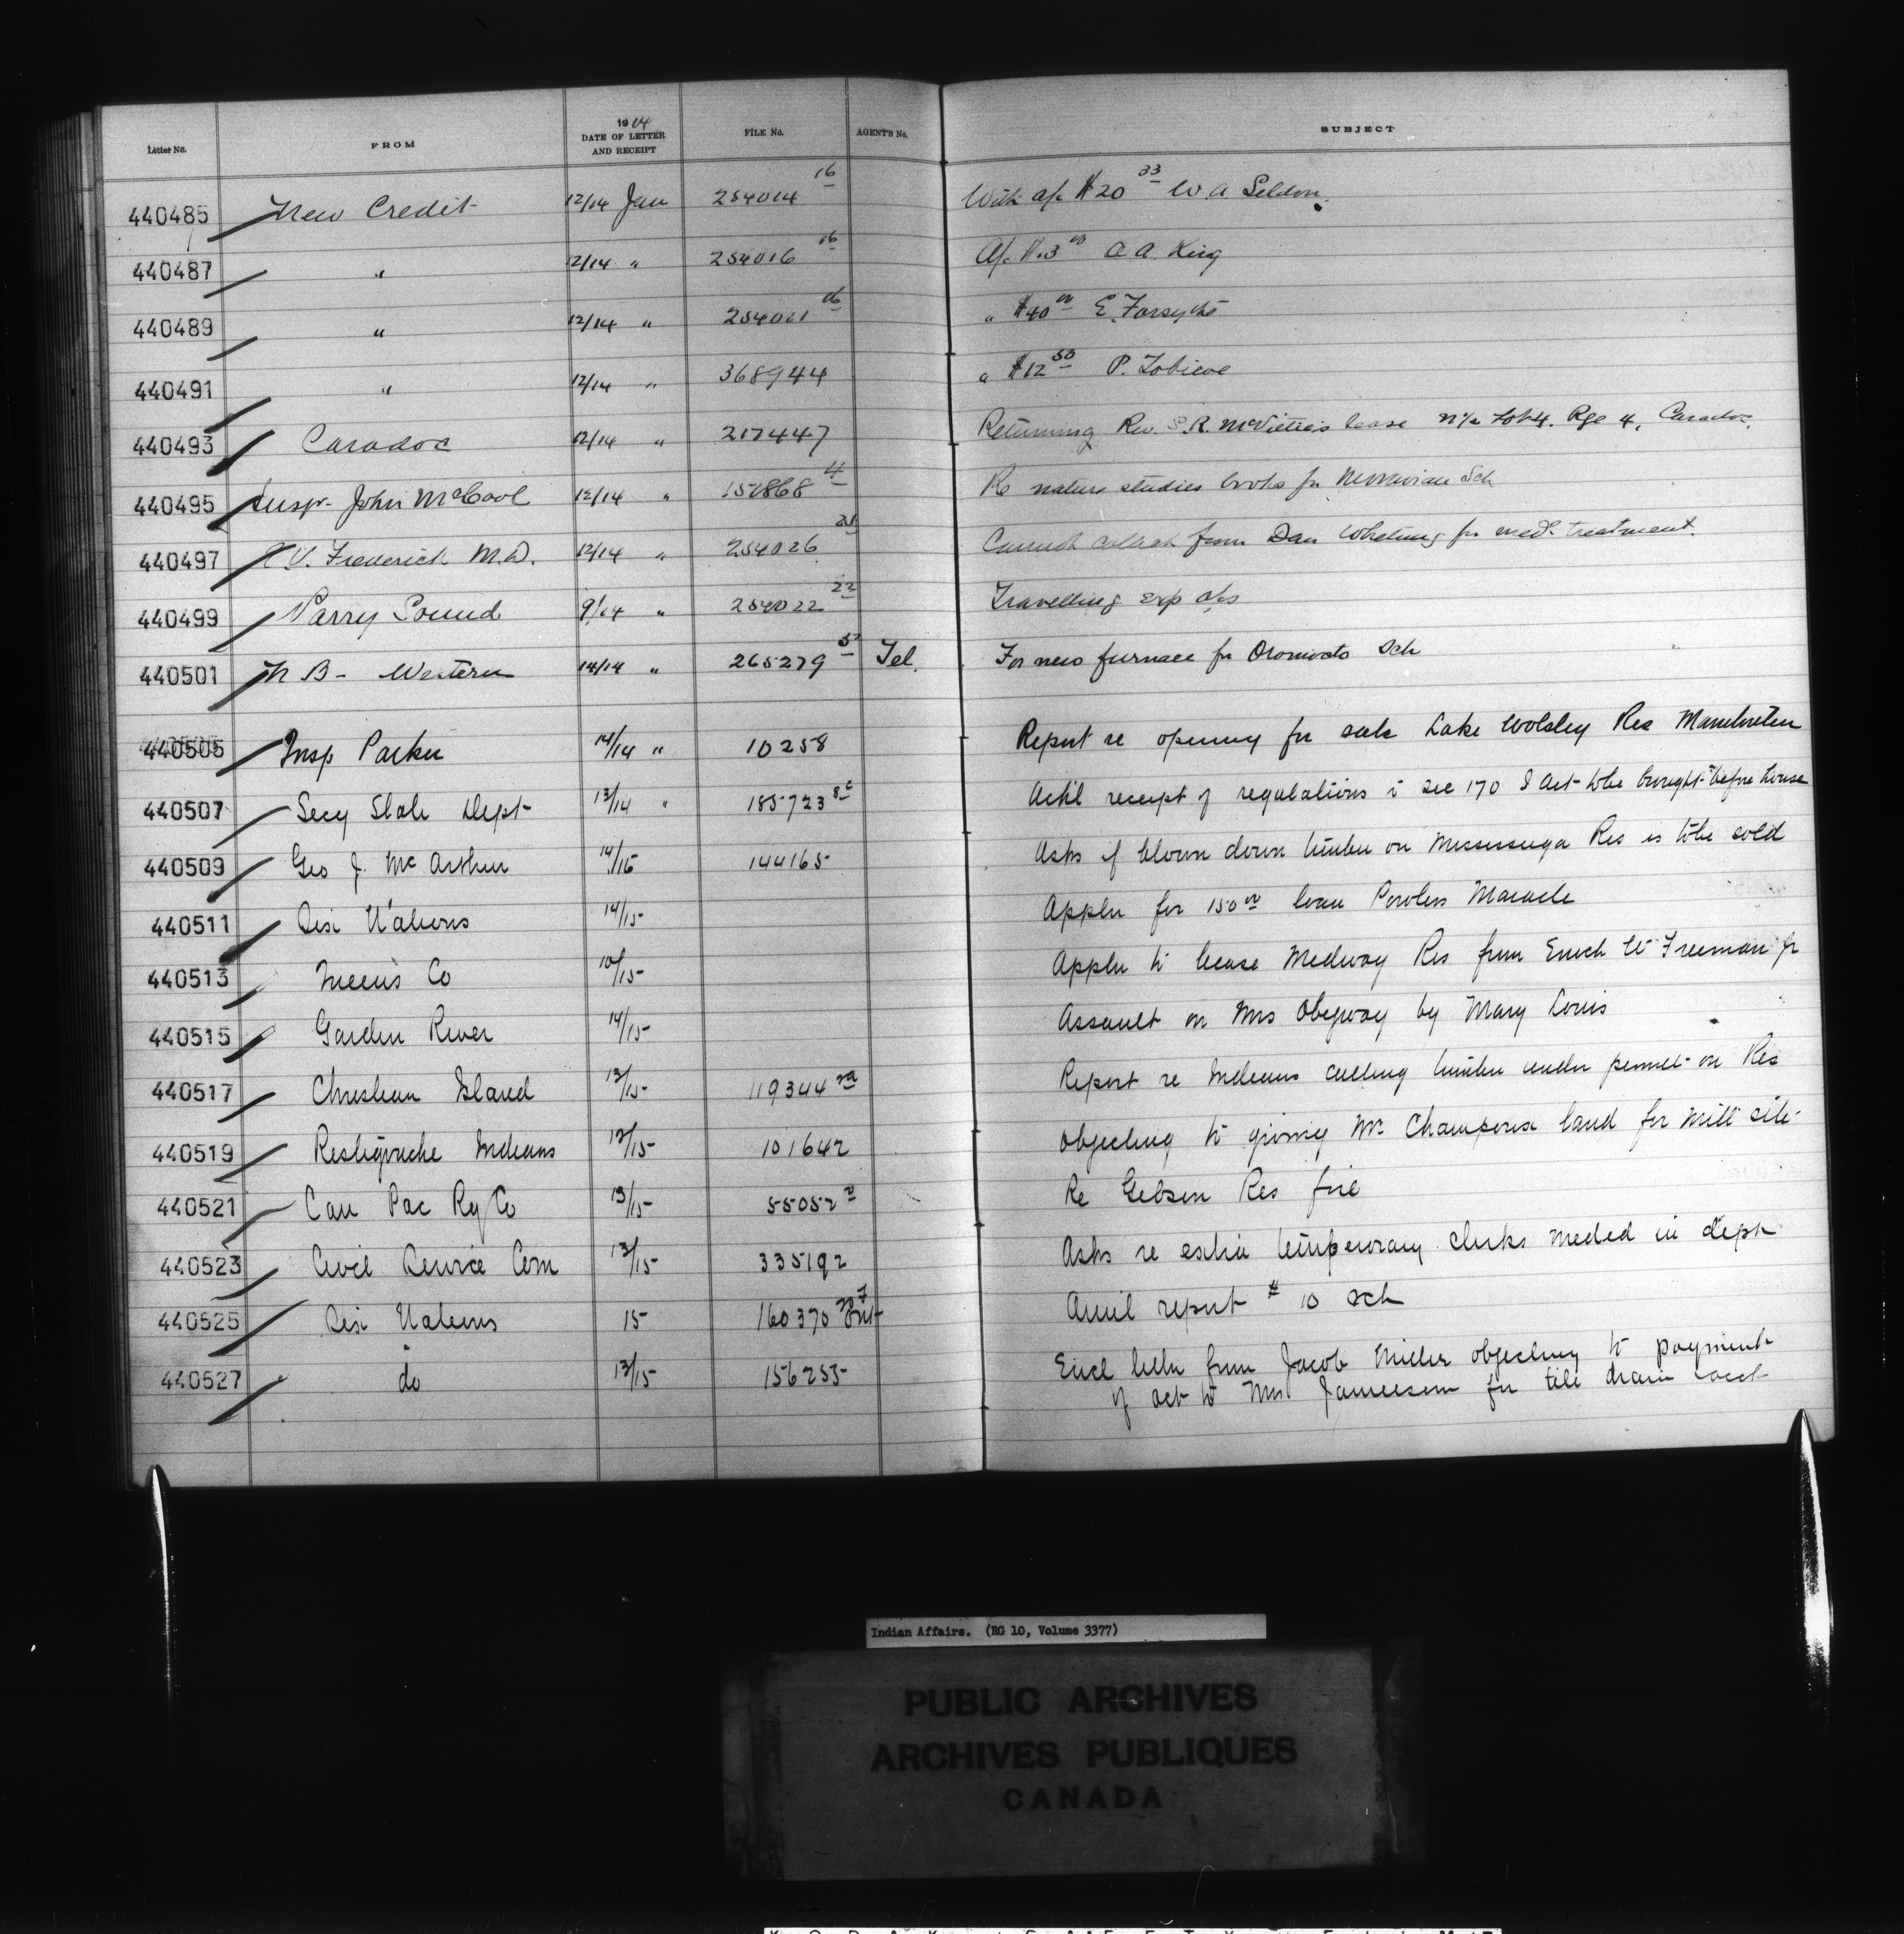 Letter No. FROM 1914 DATE OF LETTER AND RECEIPT FILE No. AGENTS No. SUBJECT
440485 New Credit 12/14 Jan 254014 16 With a/c $20 33 W. A. Seldon.
440487 " 12/14 " 254016 16 A/c $.3 00 A. King
440489 " 12/14 " 254021 16 " $40 00 E. Forsythe
440491 " 12/14 " 368944 " $12 50 P. Tobicoe
440493 Caradoc 12/14 " 217447 Returning Rev. S.R. McVitties lease N½ Lot 4. Rge 4, Caradoc.
440495 Insp. John McCool 12/14 " 151868 4 Re nature studies books for Moravian Sch
440497 V. Frederick M.D. 12/14 " 254026 Cannot collect from Dan Whetung for med. treatment.
440499 Parry Sound 9/14 " 254022 22 Travelling exp a/cs
440501 N B - Western 14/14 " 265279 5 Tel. For new furnace for Oromocto Sch
440505 Insp Parker 14/14 " 10258 Report re opening for sale Lake Wolsley Res Manitoulin
440507 Secy State Dept 13/14 " 185723 Ack'l receipt of regulations i sec 170 I Act to be brought before house
440509 Geo J. McArthur 14/15 144165 Asks if blown down timber on Mississauga Res is to be sold
440511 Six Nations 14/15 Appln for 150 00 loan Powless Maracle
440513 Queens Co 10/15 Appln to lease Medway Res from Enoch W Freeman jr
440515 Garden River 14/15 Assault on Mrs Obegway by Mary Louis
440517 Christian Island 13/15 119344 2A Report re Indians cutting timber under permit on Res
440519 Restigouche Indians 12/15 101642 Objecting to giving Mr. Champoux land for mill site
440521 Can Pac Ry Co 13/15 55052 2 Re Gibson Res fire
440523 Civil Service Com 13/15 335192 Asks re extra temporary clerks needed in dept
440525 Six Nations 15 160370 Ont Annil report # 10 sch
440527 do 13/15 156255 Encl letter from Jacob Miller objecting to payment
of act to Mrs Jamieson for tile drain
Indian Affairs. (RG 10, Volume 3377)
PUBLIC ARCHIVES
ARCHIVES PUBLIQUES
CANADA